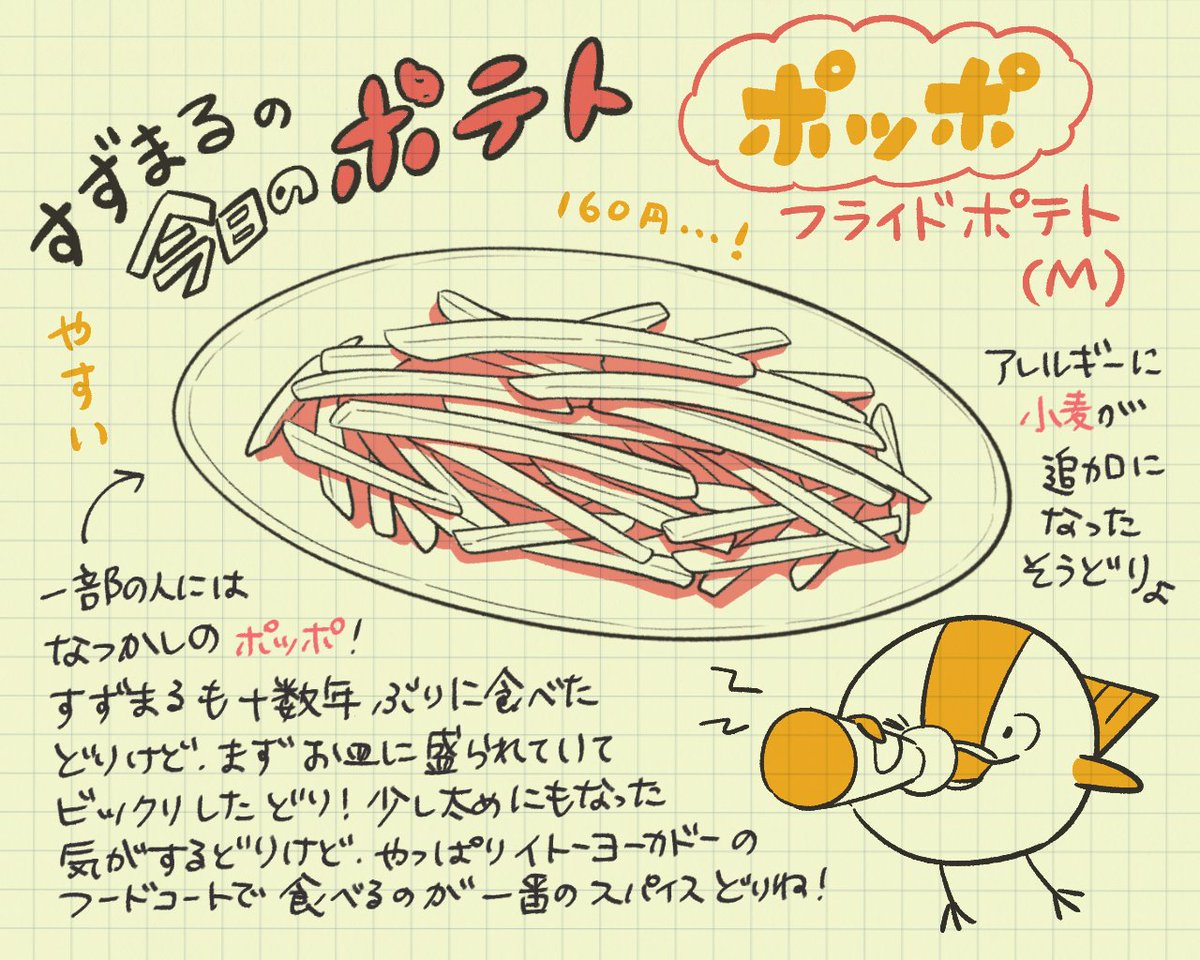 すずまるの
今日のポテト
ポッポ
フライドポテト
(M)
160円…!
やすい
アレルギーに
小麦が
追加に
なった
そうどりよ
一部の人には
なつかしのポッポ!
すずまるも十数年ぶりに食べた
どりけど、まずお皿に盛られていて
ビックリしたどり!少し太めにもなった
気がするどりけど、やっぱりイトーヨーカドーの
フードコートで食べるのが一番のスパイスどりね!